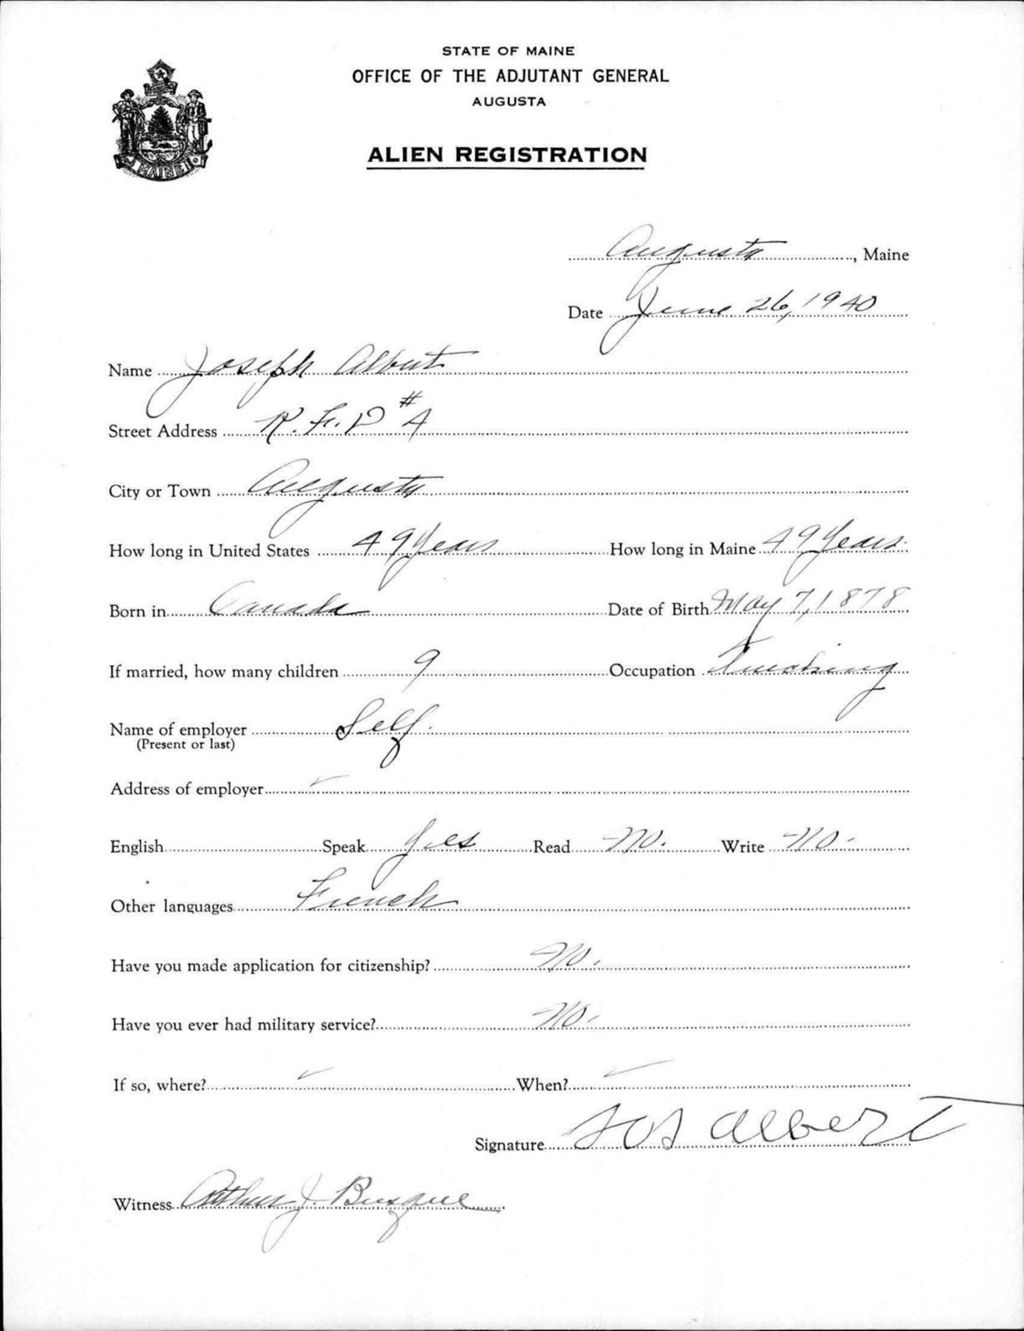 STATE OF MAINE
OFFICE OF THE ADJUTANT GENERAL
AUGUSTA
ALIEN REGISTRATION
MAINE
Augusta, Maine
Date June 26, 1940
Name Joseph Albert
Street Address R.F.D #4
City or Town Augusta
How long in United States 49 Years How long in Maine 49 Years
Born in Canada Date of Birth May 7, 1878
If married, how many children 9 Occupation Trucking
Name of employer Self.
(Present or last)
Address of employer
English Speak Yes Read No. Write No.
Other languages French
Have you made application for citizenship? No.
Have you ever had military service? No.
If so, where? When?
Signature Jos Albert
Witness Arthur J. Busque